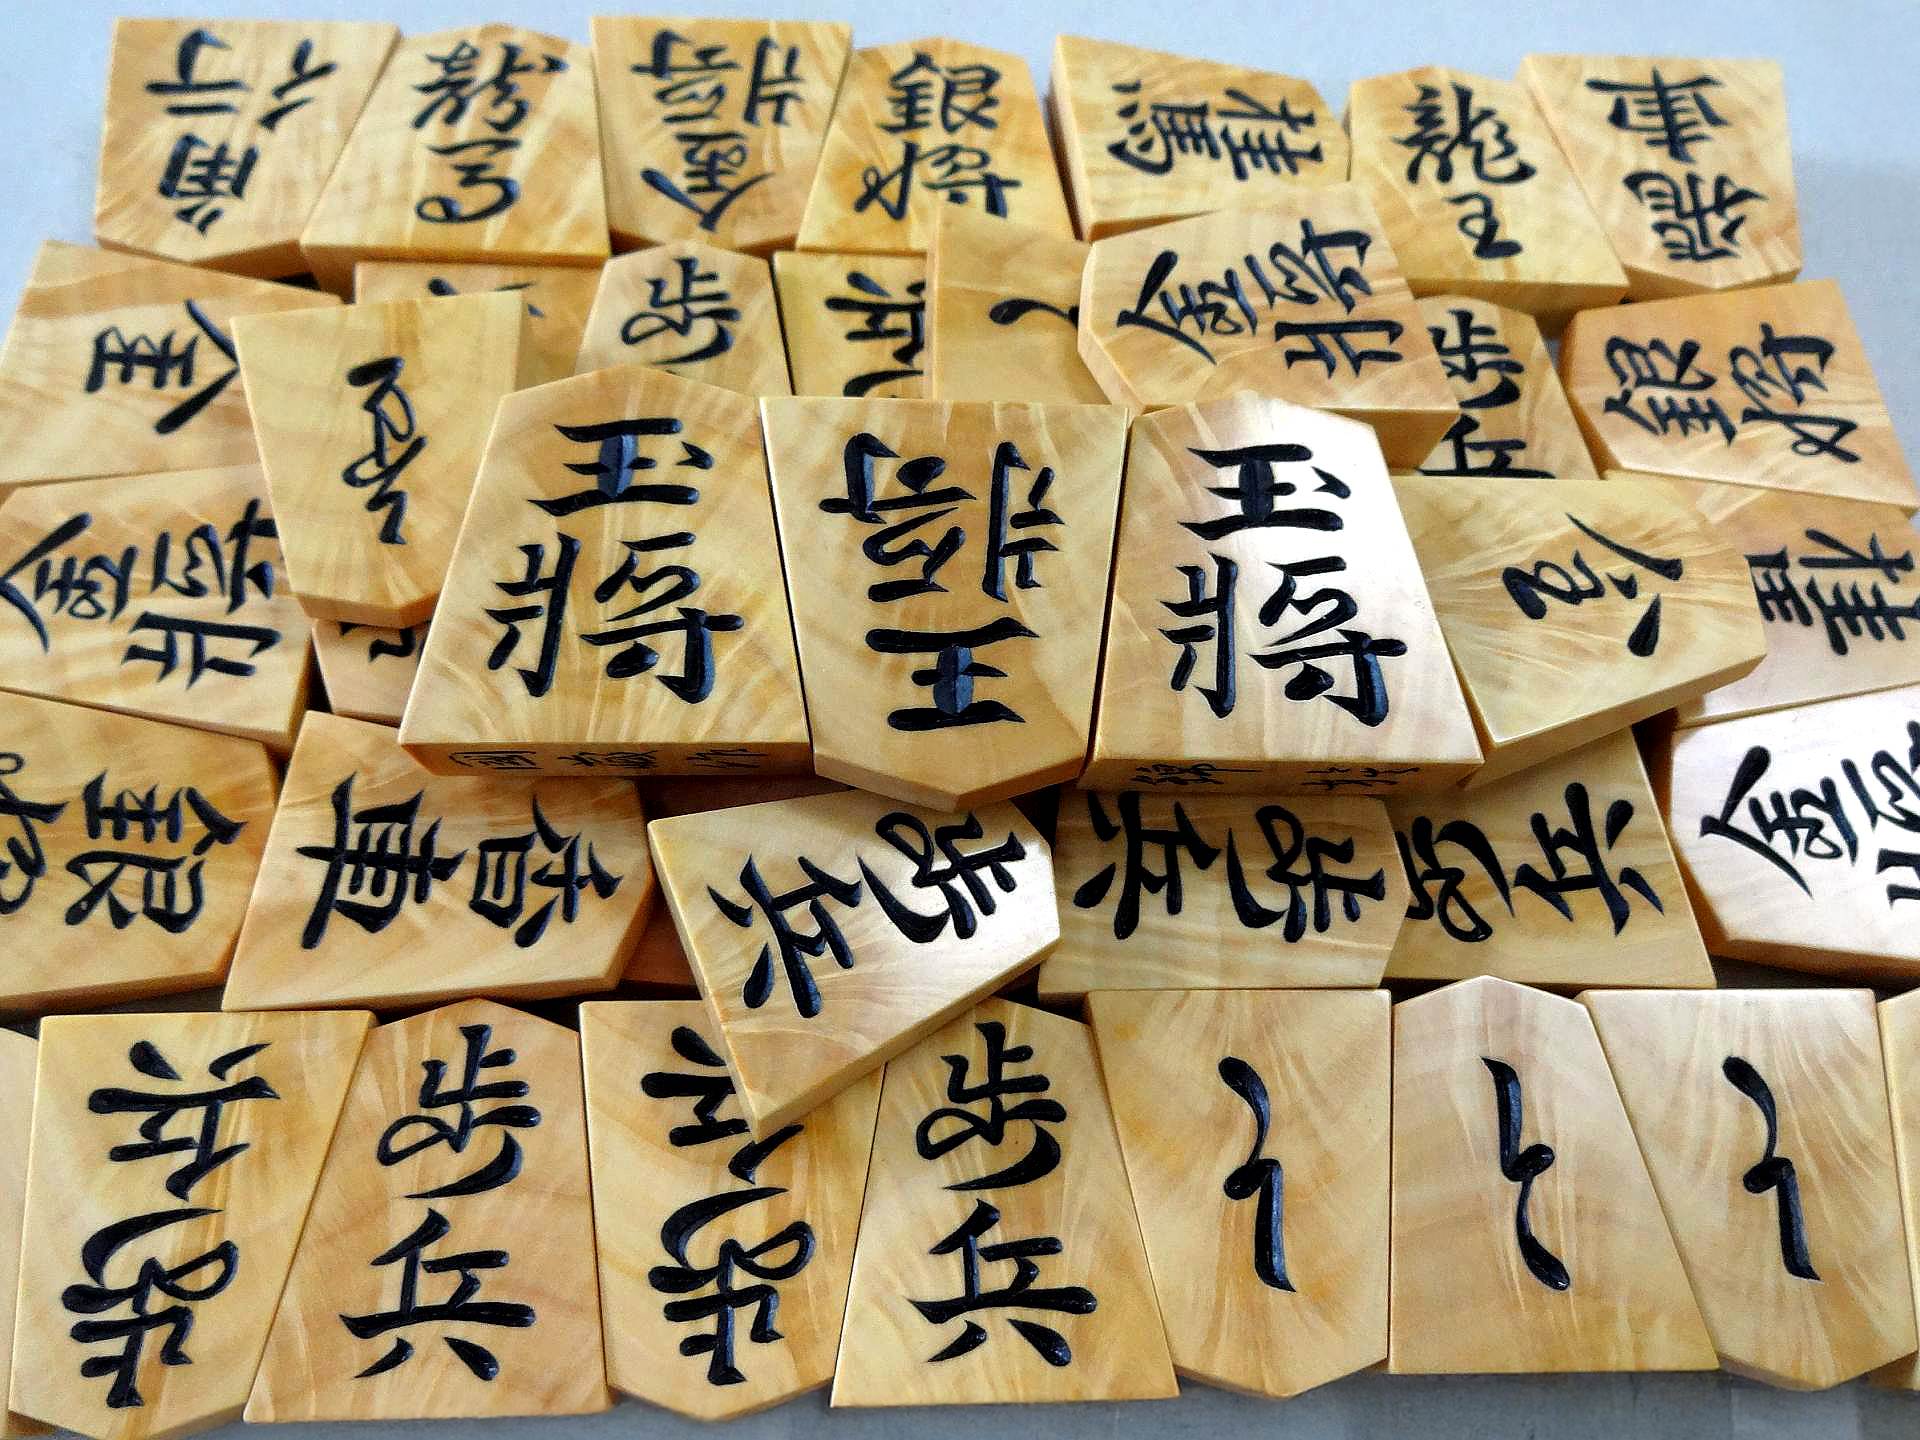 角行
龍馬
金将
銀将
桂馬
龍王
飛車
全
歩
兵
と
金将
歩兵
銀将
金将
玉将
王将
玉将
桂
銀
香車
歩兵
歩兵
歩兵
金将
歩兵
歩兵
歩兵
歩兵
と
と
と